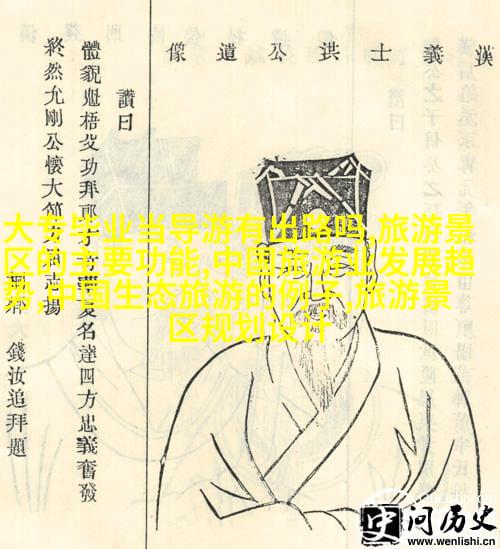 漢義士洪公遺像
讚曰
體貌魁梧功拜郎夏名達四方忠義奮發
終然允剛公懷大節志揚
錢汝追拜題
大专毕业当导游有出路吗,旅游景
区的主要功能,中国旅游业发展趋
势,中国生态旅游的例子,旅游景
区规划设计
问历史
www.wenlishi.cn